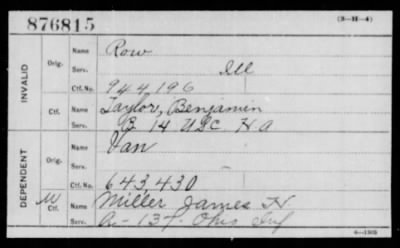 876815
(3—H—4)
INVALID
Orig.
Name Row
Serv. Ill
Ctf. No. 944,196
Ctf.
Name Taylor, Benjamin
Serv. B 14 USC HA
DEPENDENT
Orig.
Name Van
Serv.
Ctf. No. 643,430
M Ctf.
Name Miller James H
A- 137. Ohio Inf
6—1903